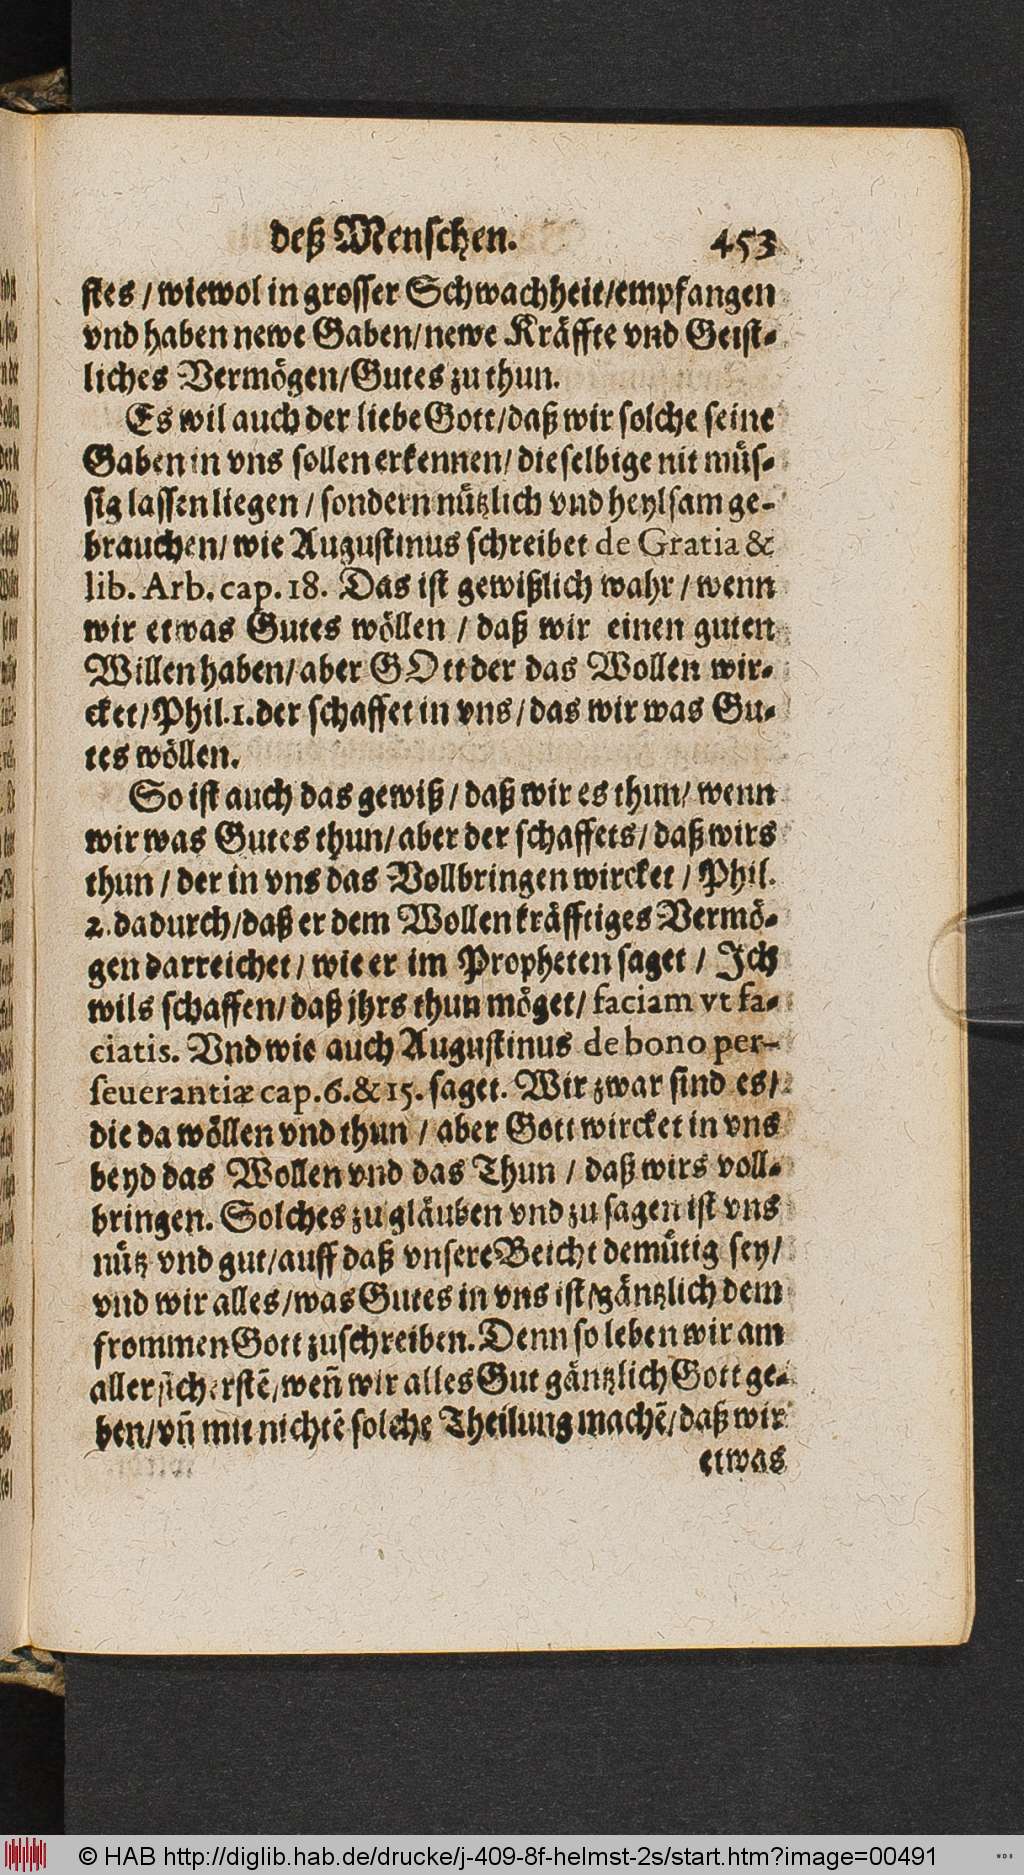 deß Menschen. 453
stes / wiewol in grosser Schwachheit/empfangen
vnd haben newe Gaben/newe Kräffte vnd Geist-
liches Vermögen/Gutes zu thun.
Es wil auch der liebe Gott/daß wir solche seine
Gaben in vns sollen erkennen/ dieselbige nit müs-
sig lassen liegen / sondern nützlich vnd heylsam ge-
brauchen/ wie Augustinus schreibet de Gratia &
lib. Arb. cap. 18. Das ist gewißlich wahr / wenn
wir etwas Gutes wöllen / daß wir einen guten
Willen haben/ aber GOtt der das Wollen wir-
cket/Phil.1.der schaffet in vns/das wir was Gu-
tes wöllen.
So ist auch das gewiß / daß wir es thun/ wenn
wir was Gutes thun/aber der schaffets/daß wirs
thun / der in vns das Vollbringen wircket / Phil.
2. dadurch/daß er dem Wollen kräfftiges Vermö-
gen darreichet/ wie er im Propheten saget / Ich
wils schaffen/daß jhrs thun möget/ faciam vt fa-
ciatis. Vnd wie auch Augustinus de bono per-
seuerantiæ cap. 6. & 15. saget. Wir zwar sind es/
die da wöllen vnd thun / aber Gott wircket in vns
beyd das Wollen vnd das Thun / daß wirs voll-
bringen. Solches zu gläuben vnd zu sagen ist vns
nütz vnd gut/auff daß vnsere Beicht demütig sey/
vnd wir alles/was Gutes in vns ist/gäntzlich dem
frommen Gott zuschreiben. Denn so leben wir am
aller sicherstē/weñ wir alles Gut gäntzlich Gott ge-
ben/vñ mit nichtē solche Theilung machē/daß wir
etwas
© HAB http://diglib.hab.de/drucke/j-409-8f-helmst-2s/start.htm?image=00491